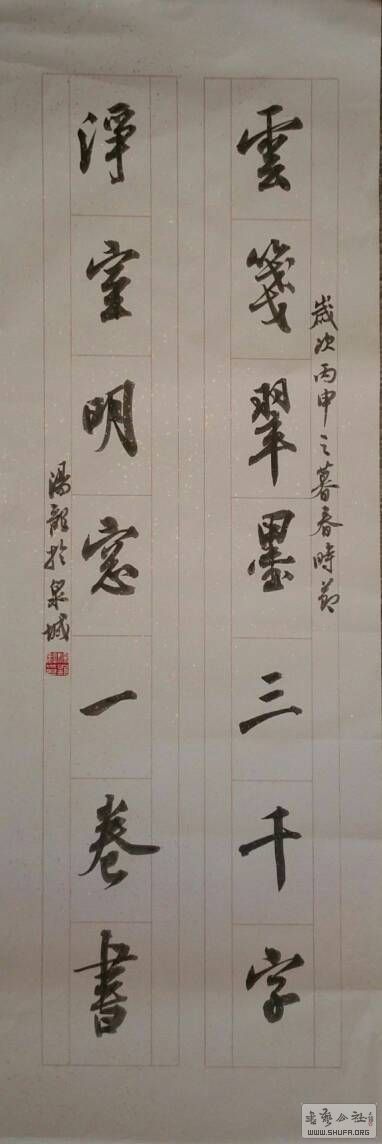 歲次丙申之暮春時節
雲箋翠墨三千字
淨室明窓一卷書
湯龍於泉城
書藝公社
WWW.SHUFA.ORG